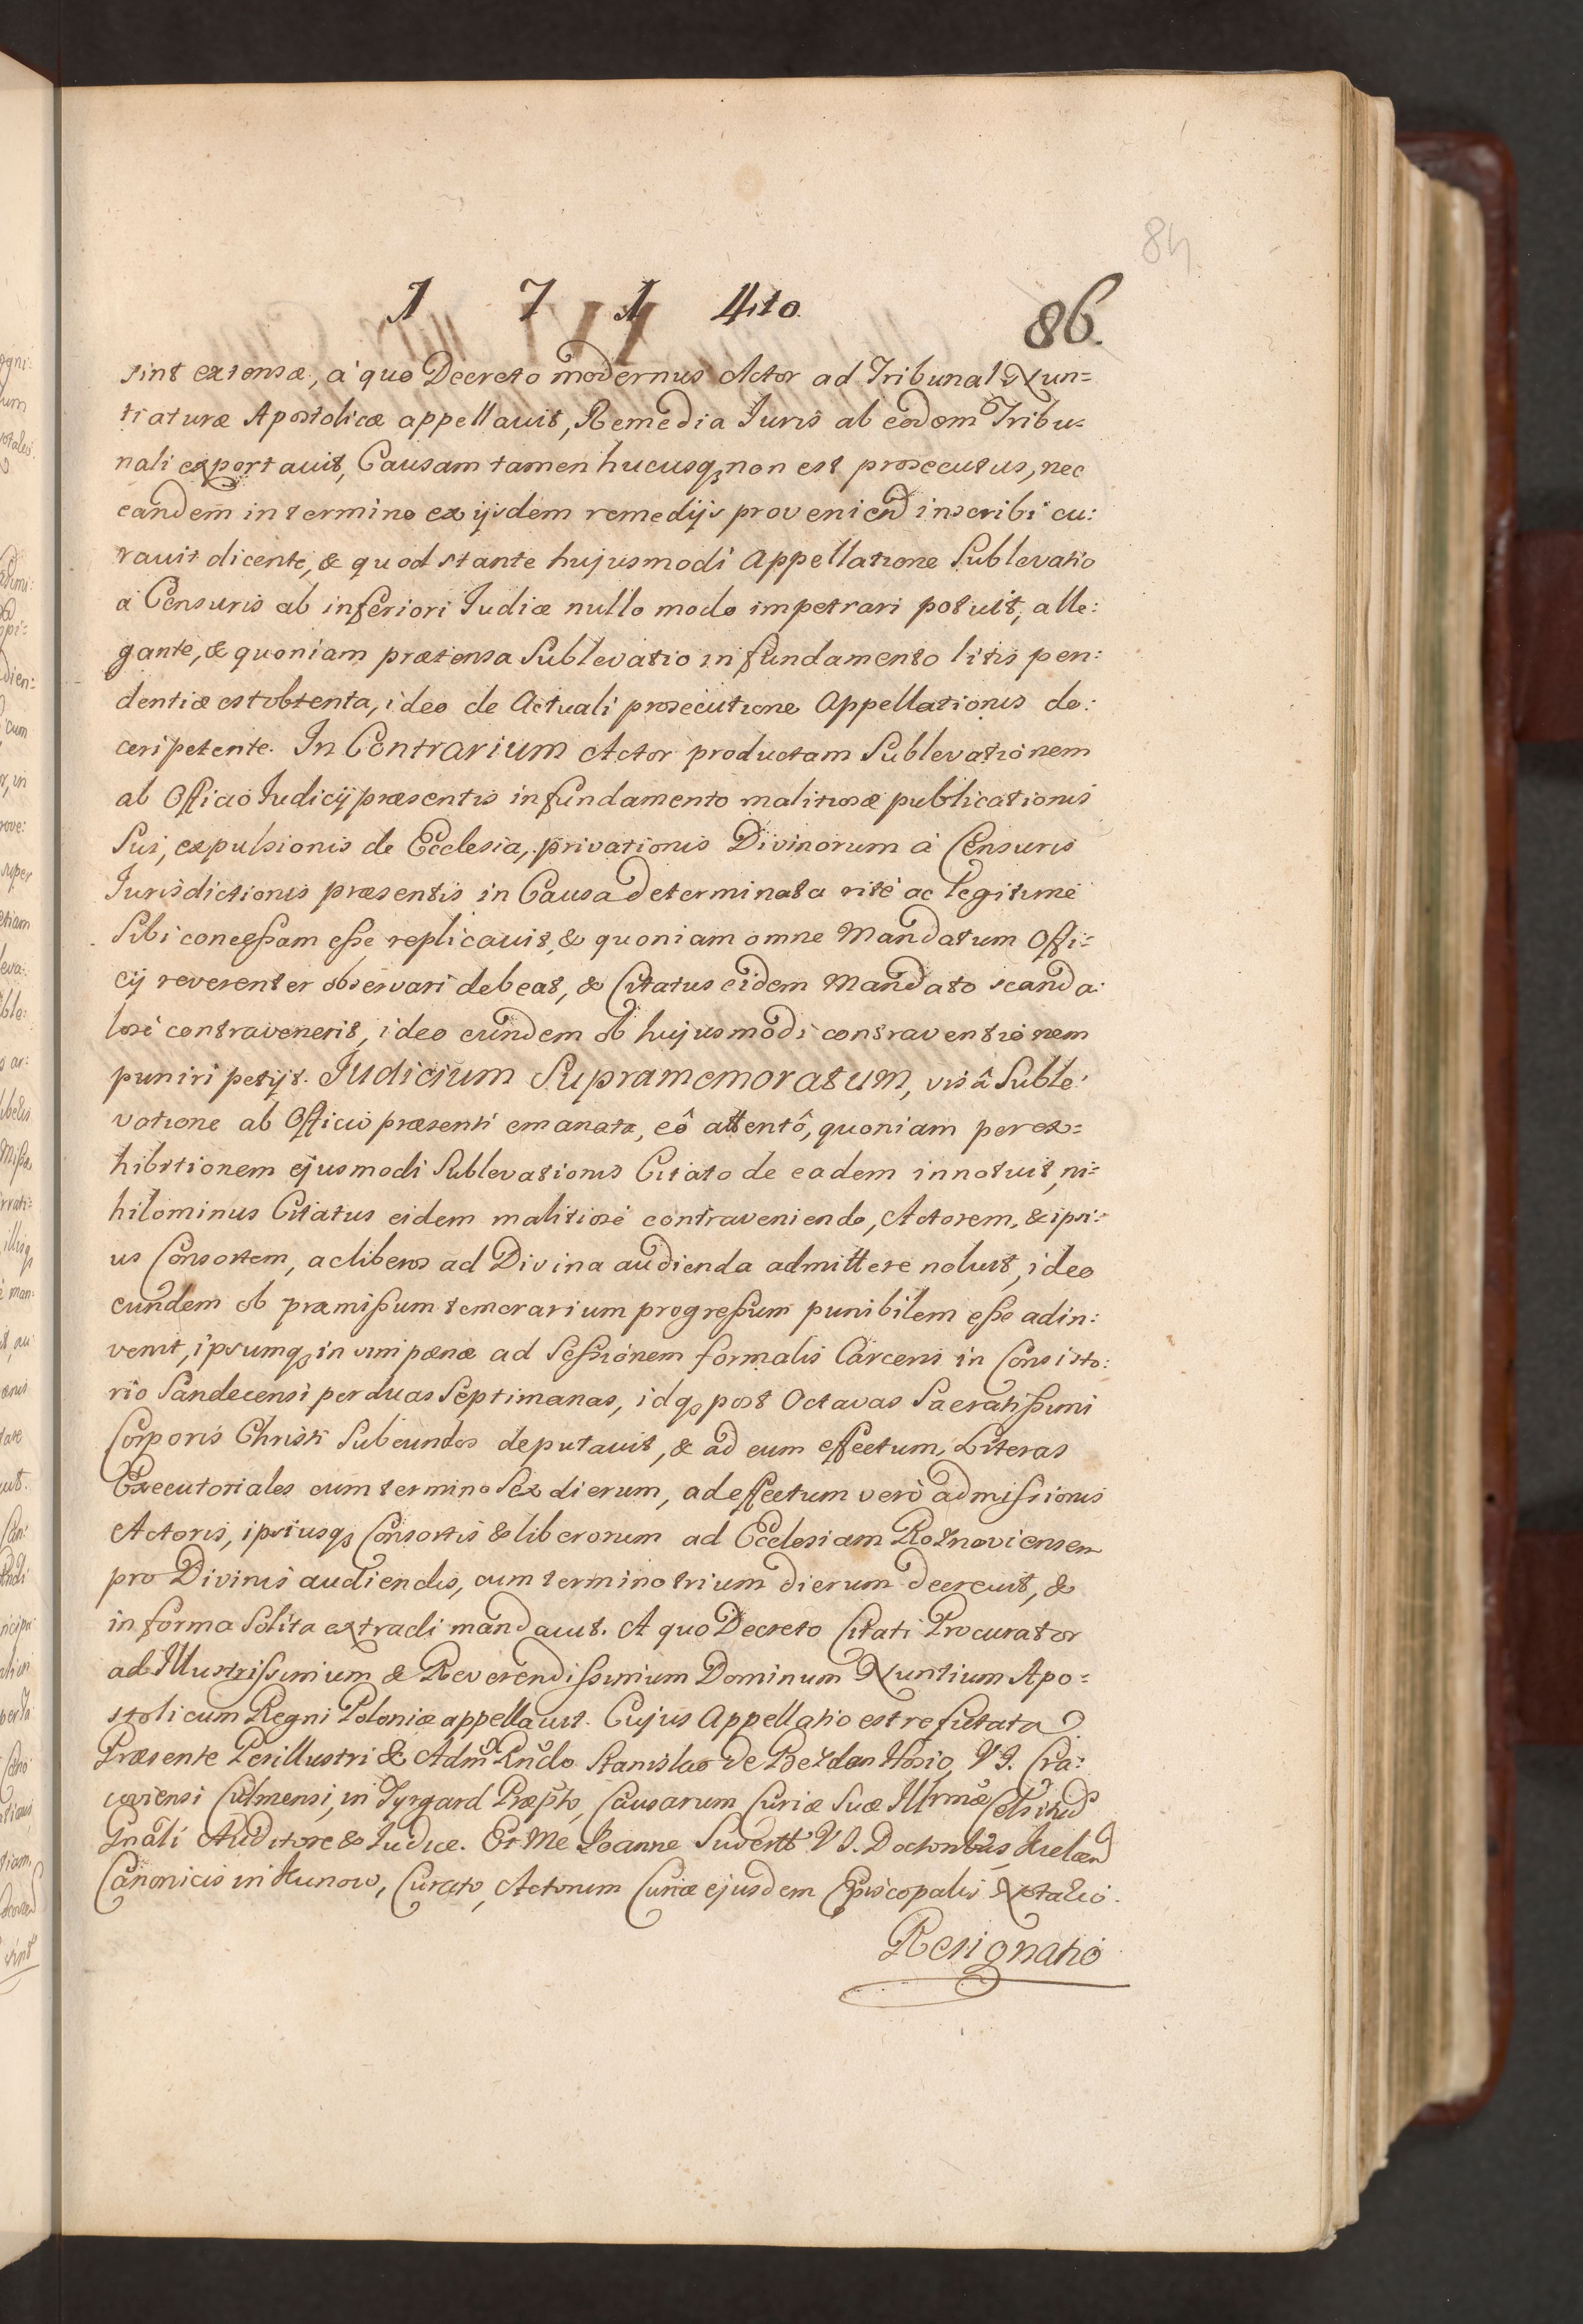 84
1 7 1 4to 86.
sint extensæ, á quo Decreto modernus Actor ad Tribunal Nun=
tiaturæ Apostolicæ appellavit, Remedia Iuris ab eodem Tribu=
nali exportavit, Causam tamen hucusq; non est prosecutus, nec
eandem in termino ex ijsdem remedijs proveniend inscribi cu:
ravit dicente, & quod stante hujusmodi Appellatione Sublevatio
á Censuris ab inferiori Iudice nullo modo impetrari potuit, alle:
gante, & quoniam prætensa Sublevatio in fundamento litis pen:
dentiæ est obtenta, ideo de Actuali prosecutione Appellationis do:
ceri petente. In Contrarium Actor productam Sublevationem
ab Officio Iudicij præsentis in fundamento malitiosæ publicationis
Sui, expulsionis de Ecclesia, privationis Divinorum á Censuris
Iurisdictionis præsentis in Causa determinata rité ac legitimé
Sibi conceßam eße replicavit, & quoniam omne Mandatum Offi=
cij reverenter observari debeat, & Citatus eidem Mandato scanda:
losé contravenerit, ideo eundem ob hujusmodi contraventionem
puniri petijt. Iudicium Supramemoratum, visâ Suble:
vatione ab Officio præsenti emanata, eô attentô, quoniam per ex=
hibitionem ejusmodi Sublevationis Citato de eadem innotuit, ni=
hilominus Citatus eidem malitiosé contraveniendo, Actorem, & ipsi:
us Consortem, ac liberos ad Divina audienda admittere noluit, ideo
eundem ob præmißum temerarium progreßum punibilem eße adin:
venit, ipsumq; in vim pœnæ ad Seßionem formalis Carceris in Consisto:
rio Sandecensi per duas Septimanas, idq; post Octavas Sacratißimi
Corporis Christi Subeundos deputavit, & ad eum effectum, Literas
Executoriales cum termino Sex dierum, ad effectum veró admissionis
Actoris, ipsiusq; Consortis & liberorum ad Ecclesiam Roznoviensem
pro Divinis audiendis, cum termino trium dierum decrevit, &
in forma Solita extradi mandavit. A quo Decreto Citati Procurator
ad Illustrißimum & Reverendißimum Dominum Nuntium Apo=
stolicum Regni Poloniæ appellavit. Cujus Appellatio est refutata
Præsente Perillustri & Adm Rndo Stanislao de Bezdan Hosio, V I. Cra:
coviensi Culmensi, in Tyrgard Præpto, Causarum Curiæ Suæ Illrmæ Celsitud
Gnãli Auditore & Iudice. Et Me Ioanne V I. Doctoribus,
Canonicis in Kunow, Curato, Actorum Curiæ ejusdem Episcopalis Notario.
Resignatio